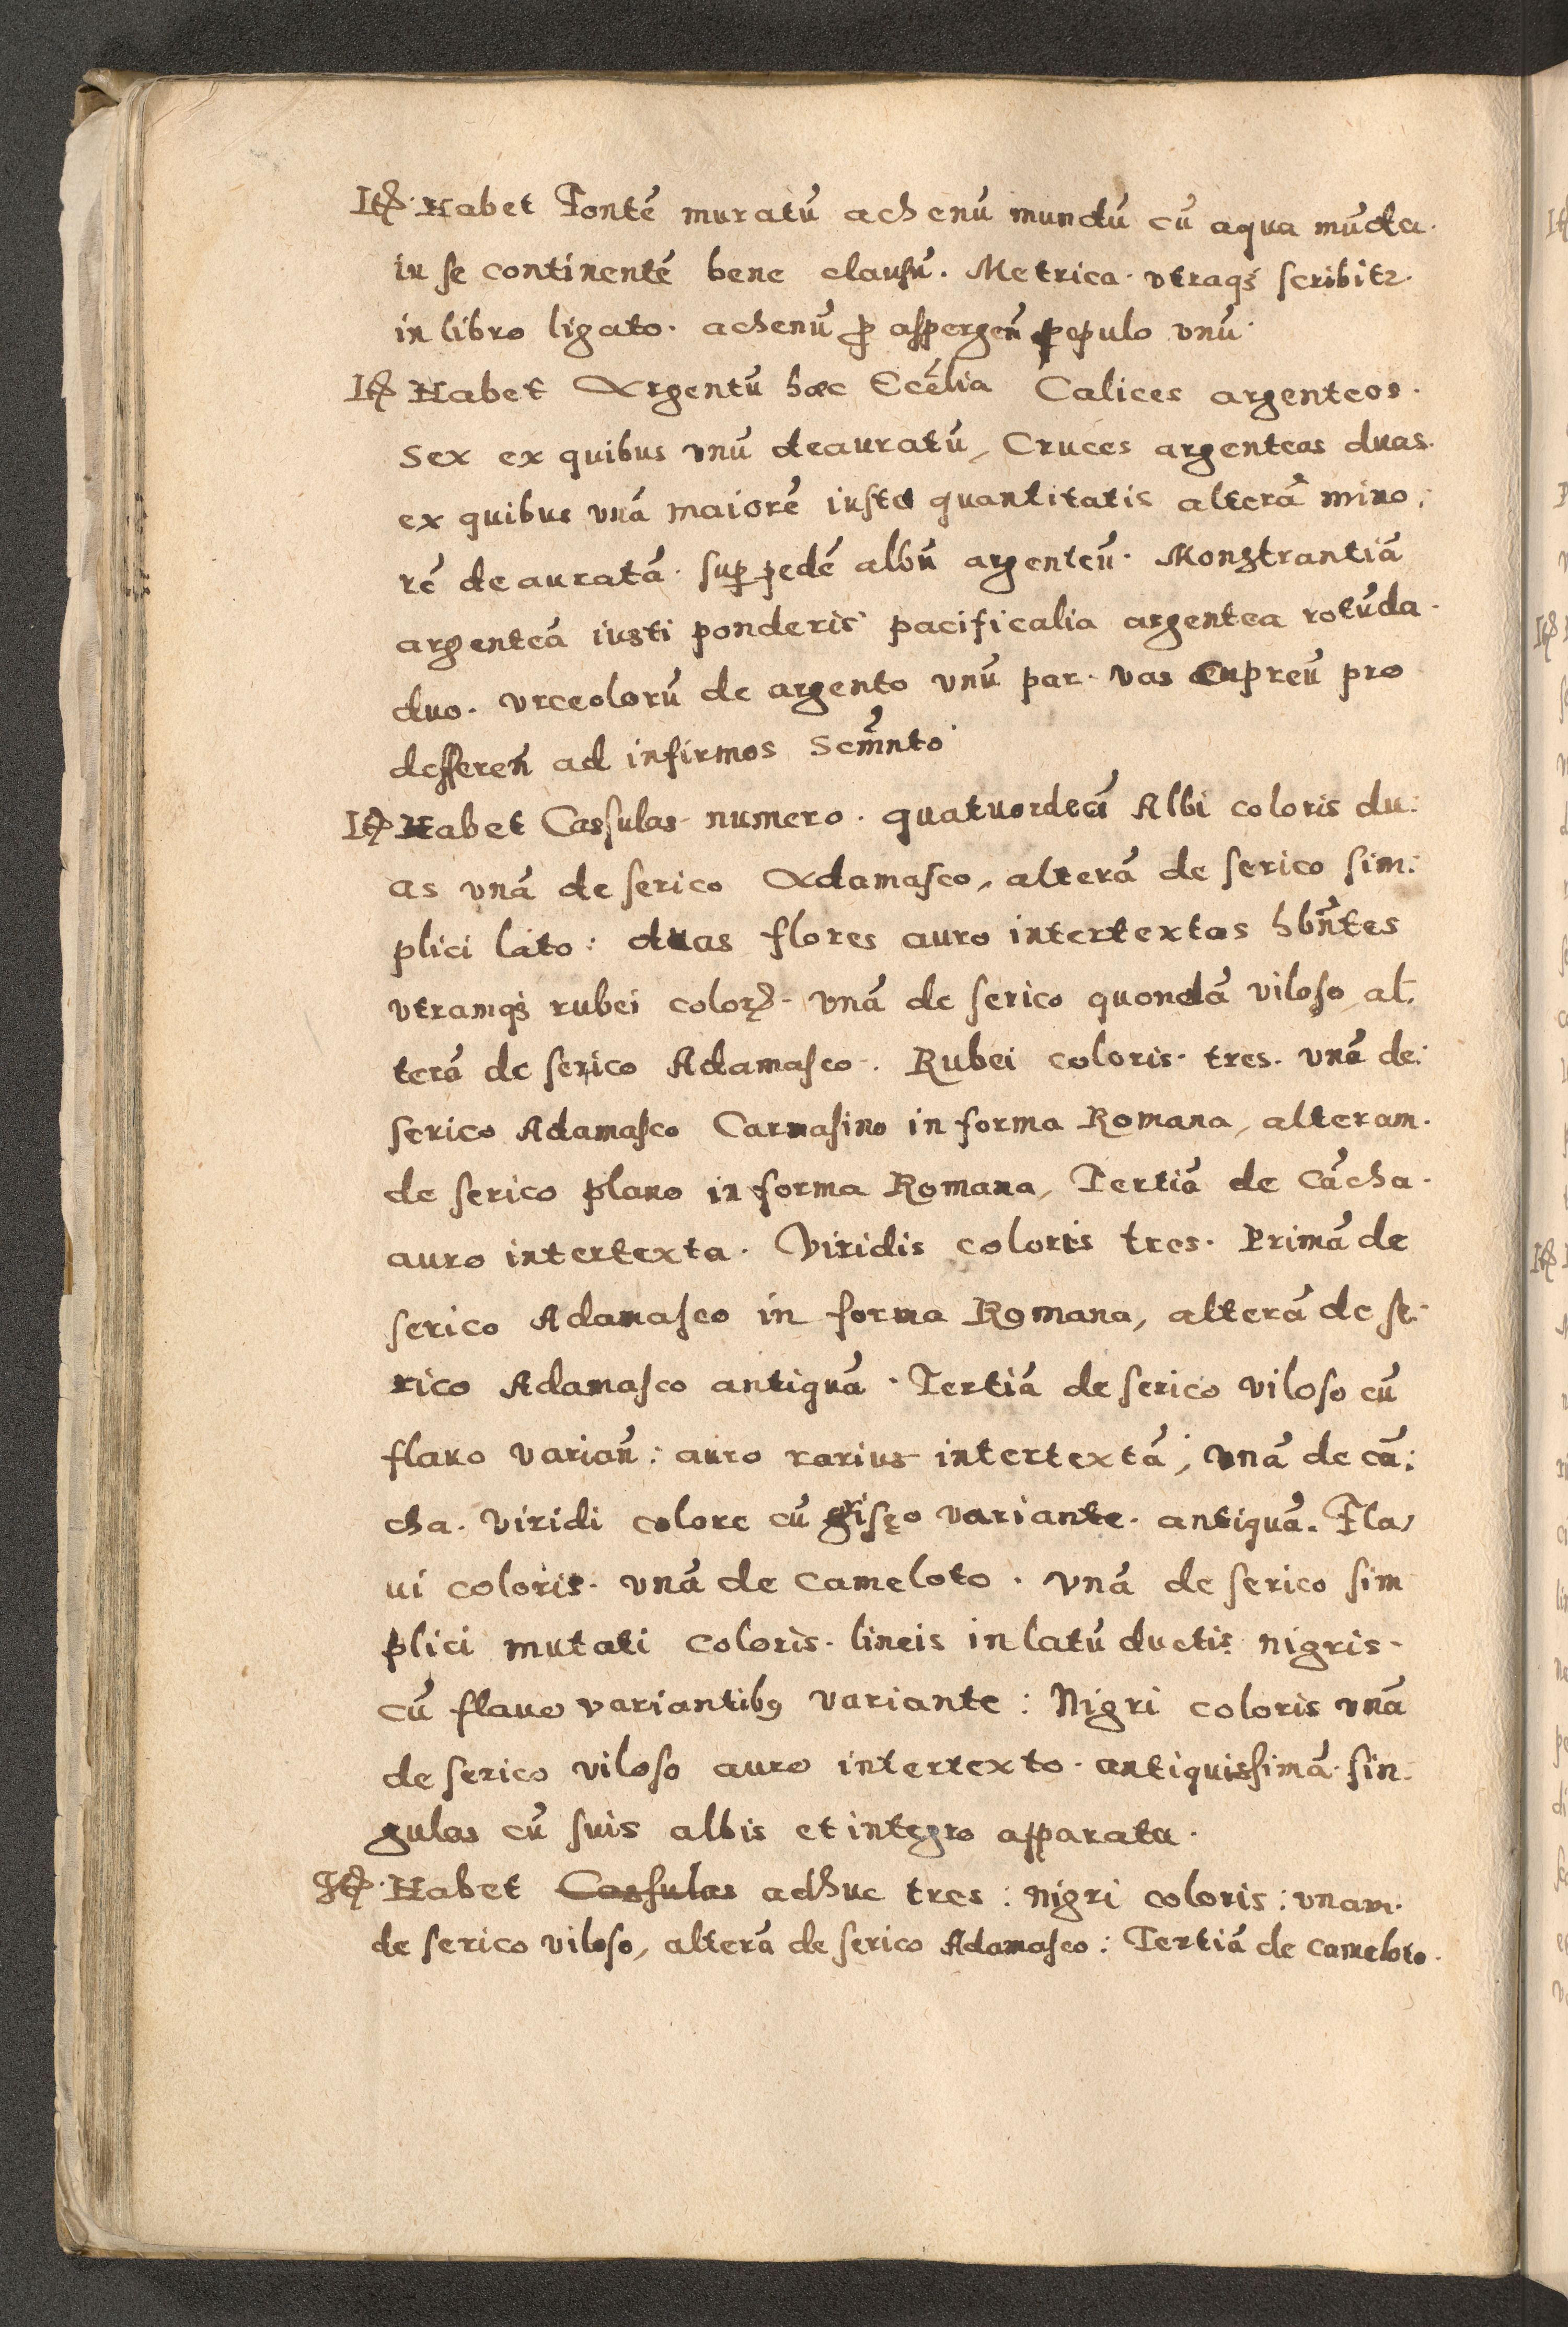 Itꝫ. Habet Fontē muratū achenū mundū cū aqua mūda.
in se continentē bene clausū. Metrica. vtraqꝫ scribitꝛ.
in libro ligato. achenū ꝓ aspergeñ populo vnū.
Itꝫ Habet Argentū hæc Eccl̄ia Calices argenteos.
Sex ex quibus vnū deauratū, Cruces argenteas duas.
ex quibus vnā maiorē iustæ quantitatis alterā mino:
rē deauratā. suꝑ pedē albū argenteū. Monstrantiā
argenteā iusti ponderis pacificalia argentea rotūda.
duo. vrceolorū de argento vnū par. vas cupreū pro
defferen̄ ad infirmos Scm̄nto.
Itꝫ Habet Cassulas numero. quatuordecī Albi coloris du:
as vnā de serico Adamasco, alterā de serico sim:
plici lato: duas flores auro intertextas hbn̄tes
vtramqꝫ rubei colorꝭ. vnā de serico quondā viloso al:
terā de serico Adamasco. Rubei coloris. tres. vnā de:
serico Adamasco Carmasino in forma Romana, alteram.
de serico plano in forma Romana, Tertiā de Cācha.
auro intertexta. Viridis coloris tres. Primā de
serico Adamasco in forma Romana, alterā de se:
rico Adamasco antiquā. Tertiā de serico viloso cū
flauo varian̄: auro rarius intertextā; vnā de cā:
cha. viridi colore cū griseo variante. antiquā. Fla,
ui coloris. vnā de Cameloto. vnā de serico sim
plici mutati coloris. lineis in latū ductis nigris.
cū flauo variantibꝰ variante: Nigri coloris vnā
de serico viloso auro intertexto. antiquissimā. sin:
gulas cū suis albis et integro apparatu.
Itꝫ. Habet Cassulas adhuc tres: nigri coloris: vnam.
de serico viloso, alterā de serico Adamasco: Tertiā de cameloto.